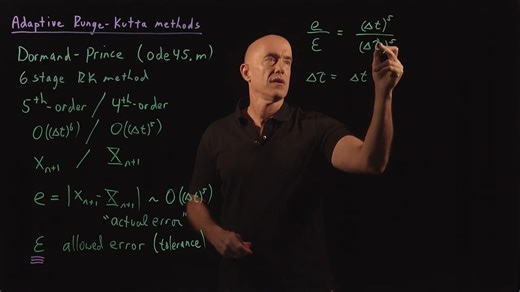 Adaptive Runge-Kutta methods
Dormand-Prince (ode45.m)
6 stage RK method
5th-order / 4th-order
O((Δt)⁶) / O((Δt)⁵)
Xₙ₊₁ / X̲ₙ₊₁
e = |Xₙ₊₁ - X̲ₙ₊₁| ~ O((Δt)⁵)
"actual error"
ε allowed error (tolerance)
e/ε = (Δt)⁵/(Δτ)⁵
Δτ = Δt